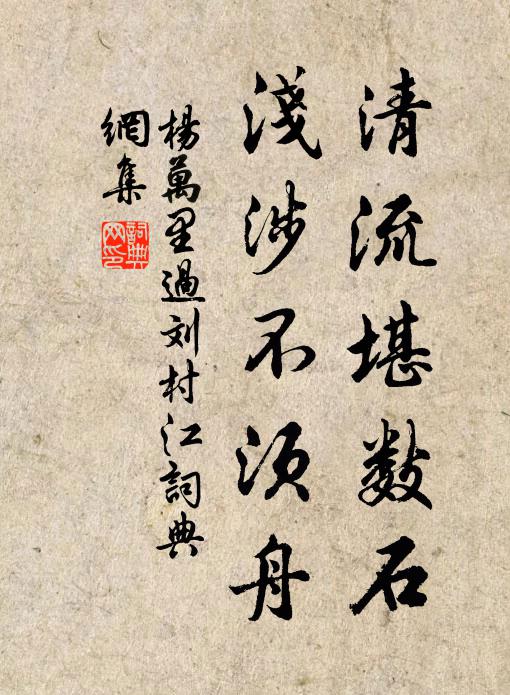 清流堪数石
淺涉不須舟
楊萬里過刘村江詞典
網集
詞典
网印